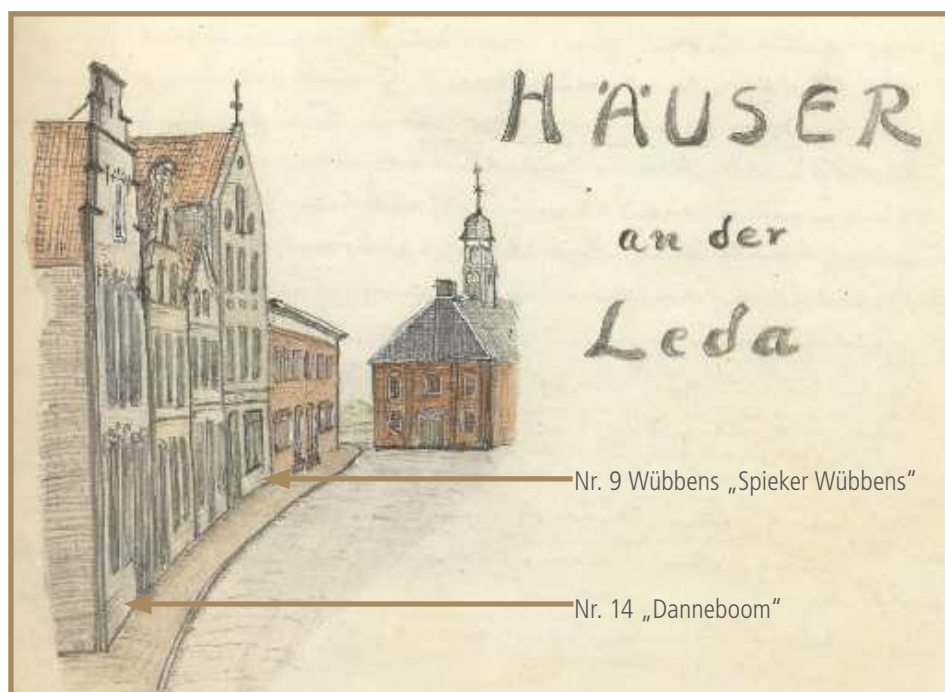 HÄUSER
an der
Leda
Nr. 9 Wübbens „Spieker Wübbens“
Nr. 14 „Danneboom“